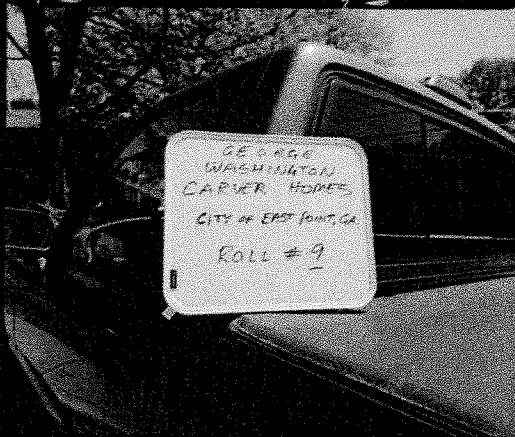 GEORGE
WASHINGTON
CARVER HOMES
CITY OF EAST POINT, GA.
ROLL # 9